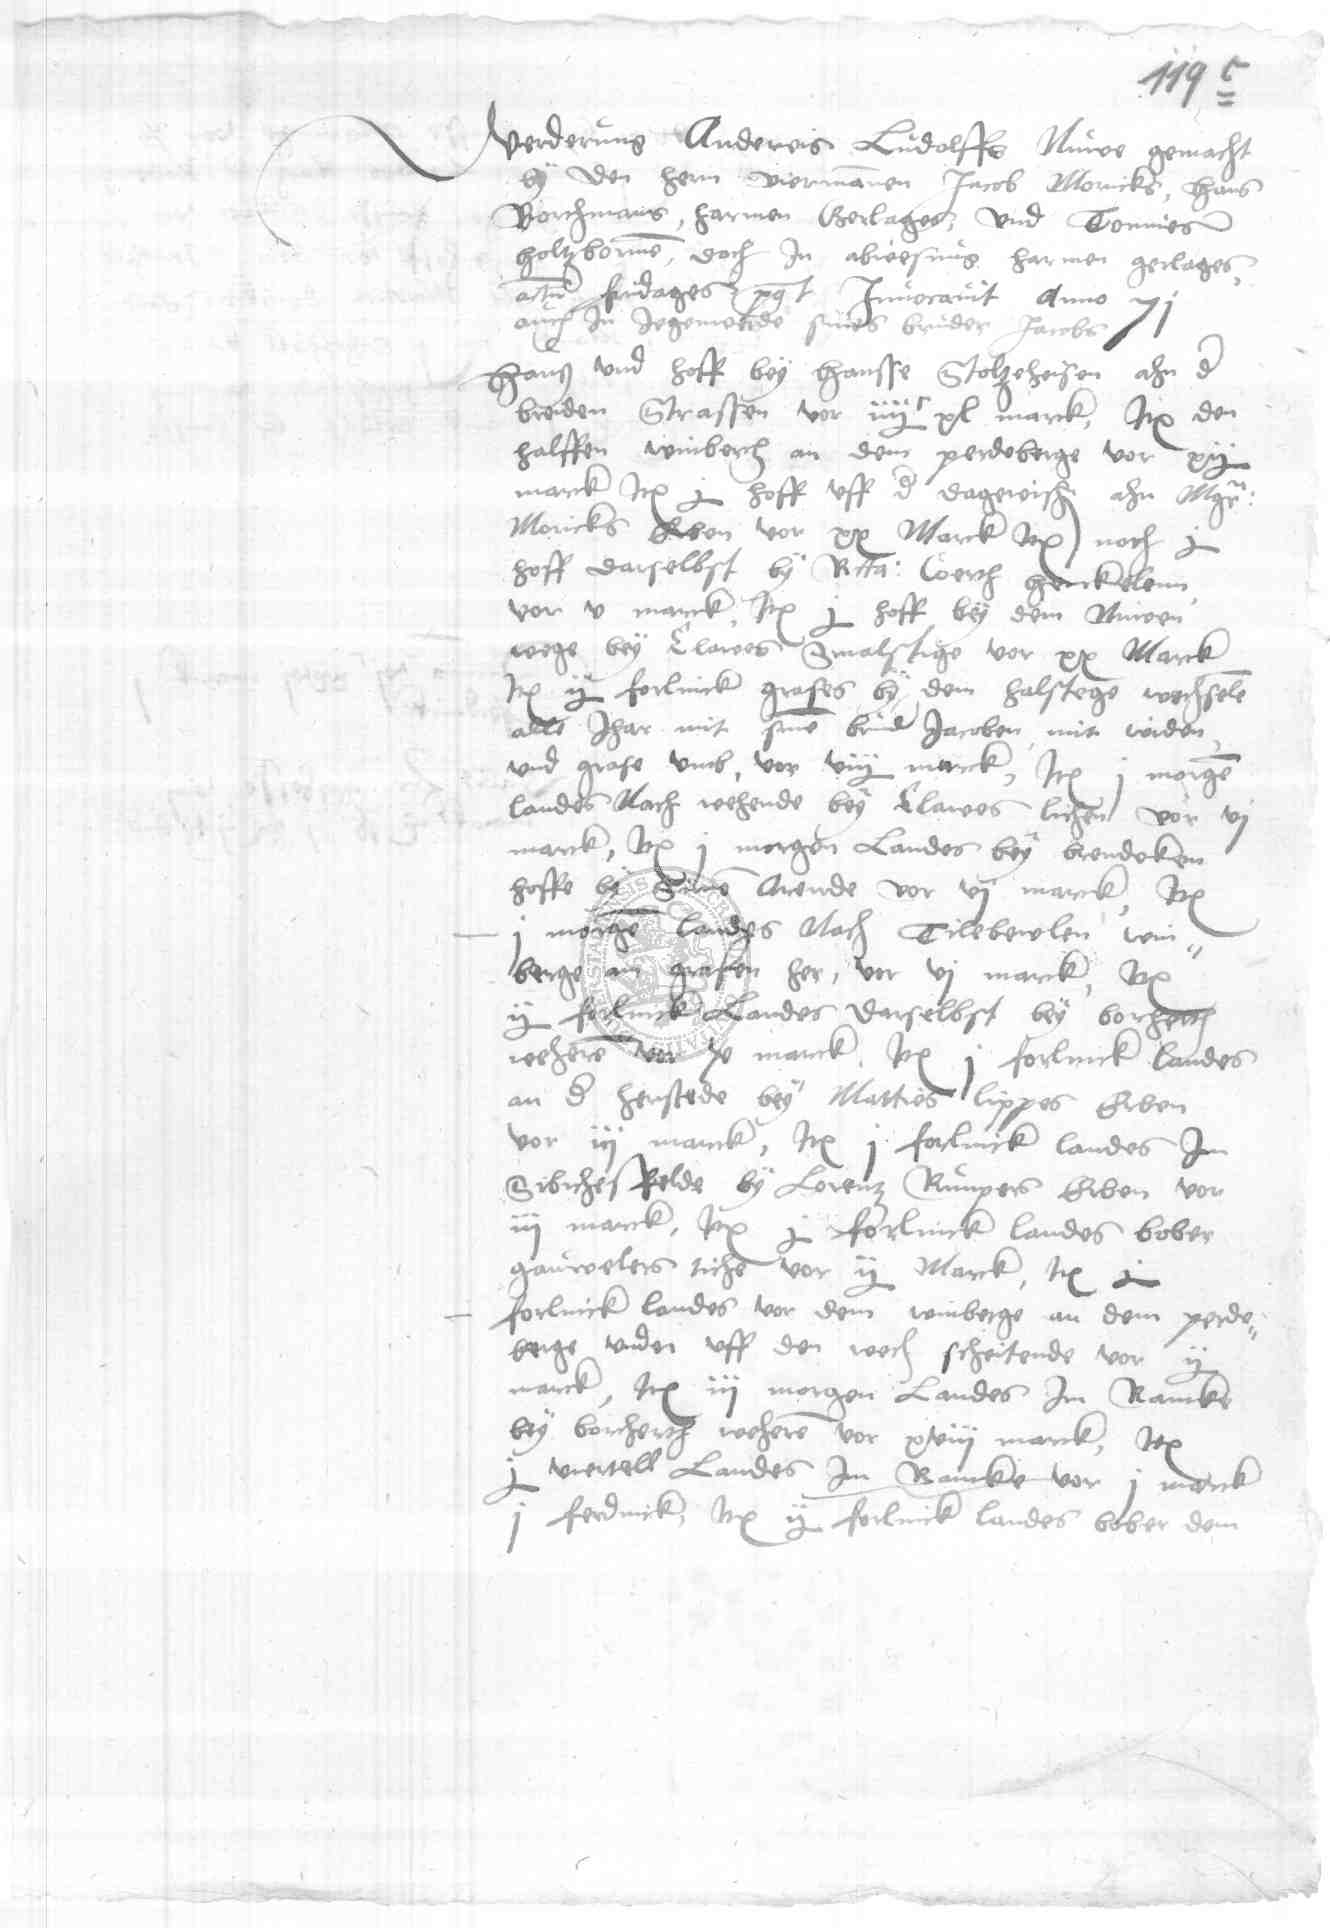 119 c
Verderung Andereis Ludolffs Nuwe gemacht
by den hern viermannen Jacob Moricks, Hans
Borchmans, Harmen Gerlages, vnd Tonnies
Holtzborne, doch In abwesung Harmen gerlages,
actu fridages post Inuocauit Anno 71
auch In Jegenwerde sines bruder Jacobs
Haus vnd hoff bey Hansse Stoltzeheisen ahn d
breiden Strassen vor iiijc xl marck, Itx den
halffen winberch an dem perdeberge vor xij
marck Itx j hoff vff d dagereisch ahn Mgrn:
Moricks Erben vor xx Marck Itx noch j
hoff darselbst by Coerth Henckelem
vor v marck, Itx j hoff bey dem Nuwen
wege bey Clawes Smalstige vor xx Marck
Itx ij forlinck grases by dem halstege wechsele
alle Jhar mit sine brud Jacoben mit widen
vnd grase vmb, vor viij marck, Itx j morge
landes Nach wehende bey Clawes lichen vor vj
marck, Itx j morgen Landes bey brendeken
hoffe by Arende vor vj marck, Itx
j morge landes Nach Tilebewlen win"
berge am grasen her, vor vj marck, Itx
ij forlinck Landes darselbst bey borcherth
wehere vor marck, Itx j forlinck landes
an d herstede bey Matties lippes Erben
vor iij marck, Itx j forlinck landes Im
Sibichesfelde by Lorentz Rumpers Erben vor
iij marck, Itx j forlinck landes bober
gauwelers tiche vor ij Marck, Itx j
forlinck landes vor dem winberge an dem perde"
berge vnden vff den wech scheitende vor ij
marck, Itx iij morgen Landes Im Ramcke
bey borcherth wehere vor xviij marck, Itx
j viertell Landes Im Ramcke vor j marck
j ferdinck, Itx ij forlinck landes bober dem